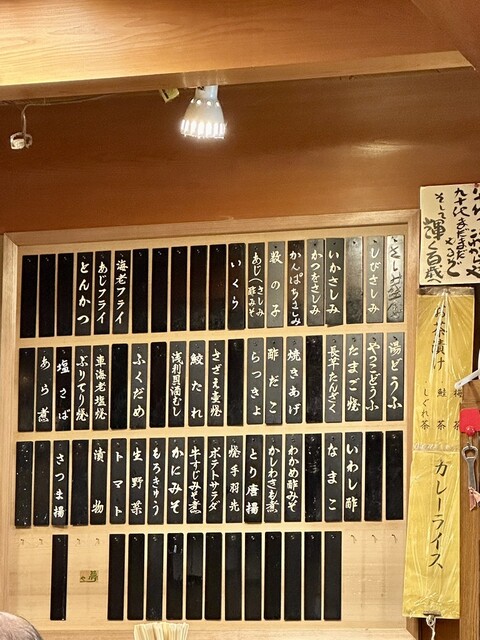 さしみ盛合
しびさしみ
いかさしみ
かつをさしみ
かんぱちさしみ
数の子
あじ さしみ 酢みそ
いくら
海老フライ
あじフライ
とんかつ
湯どうふ
やっこどうふ
たまご焼
長芋たんざく
焼きあげ
酢だこ
らっきょ
さざえ壷焼
鮫たれ
浅利貝酒むし
ふくだめ
車海老塩焼
ぶりてり焼
塩さば
あら煮
いわし酢
なまこ
わかめ酢みそ
とり唐揚
焼手羽先
ポテトサラダ
牛すじみそ煮
かにみそ
もろきゅう
生野菜
トマト
漬物
さつま揚
九十代まだまだ
そして輝く百歳へ
お茶漬け
梅茶
鮭茶
しぐれ茶
カレーライス